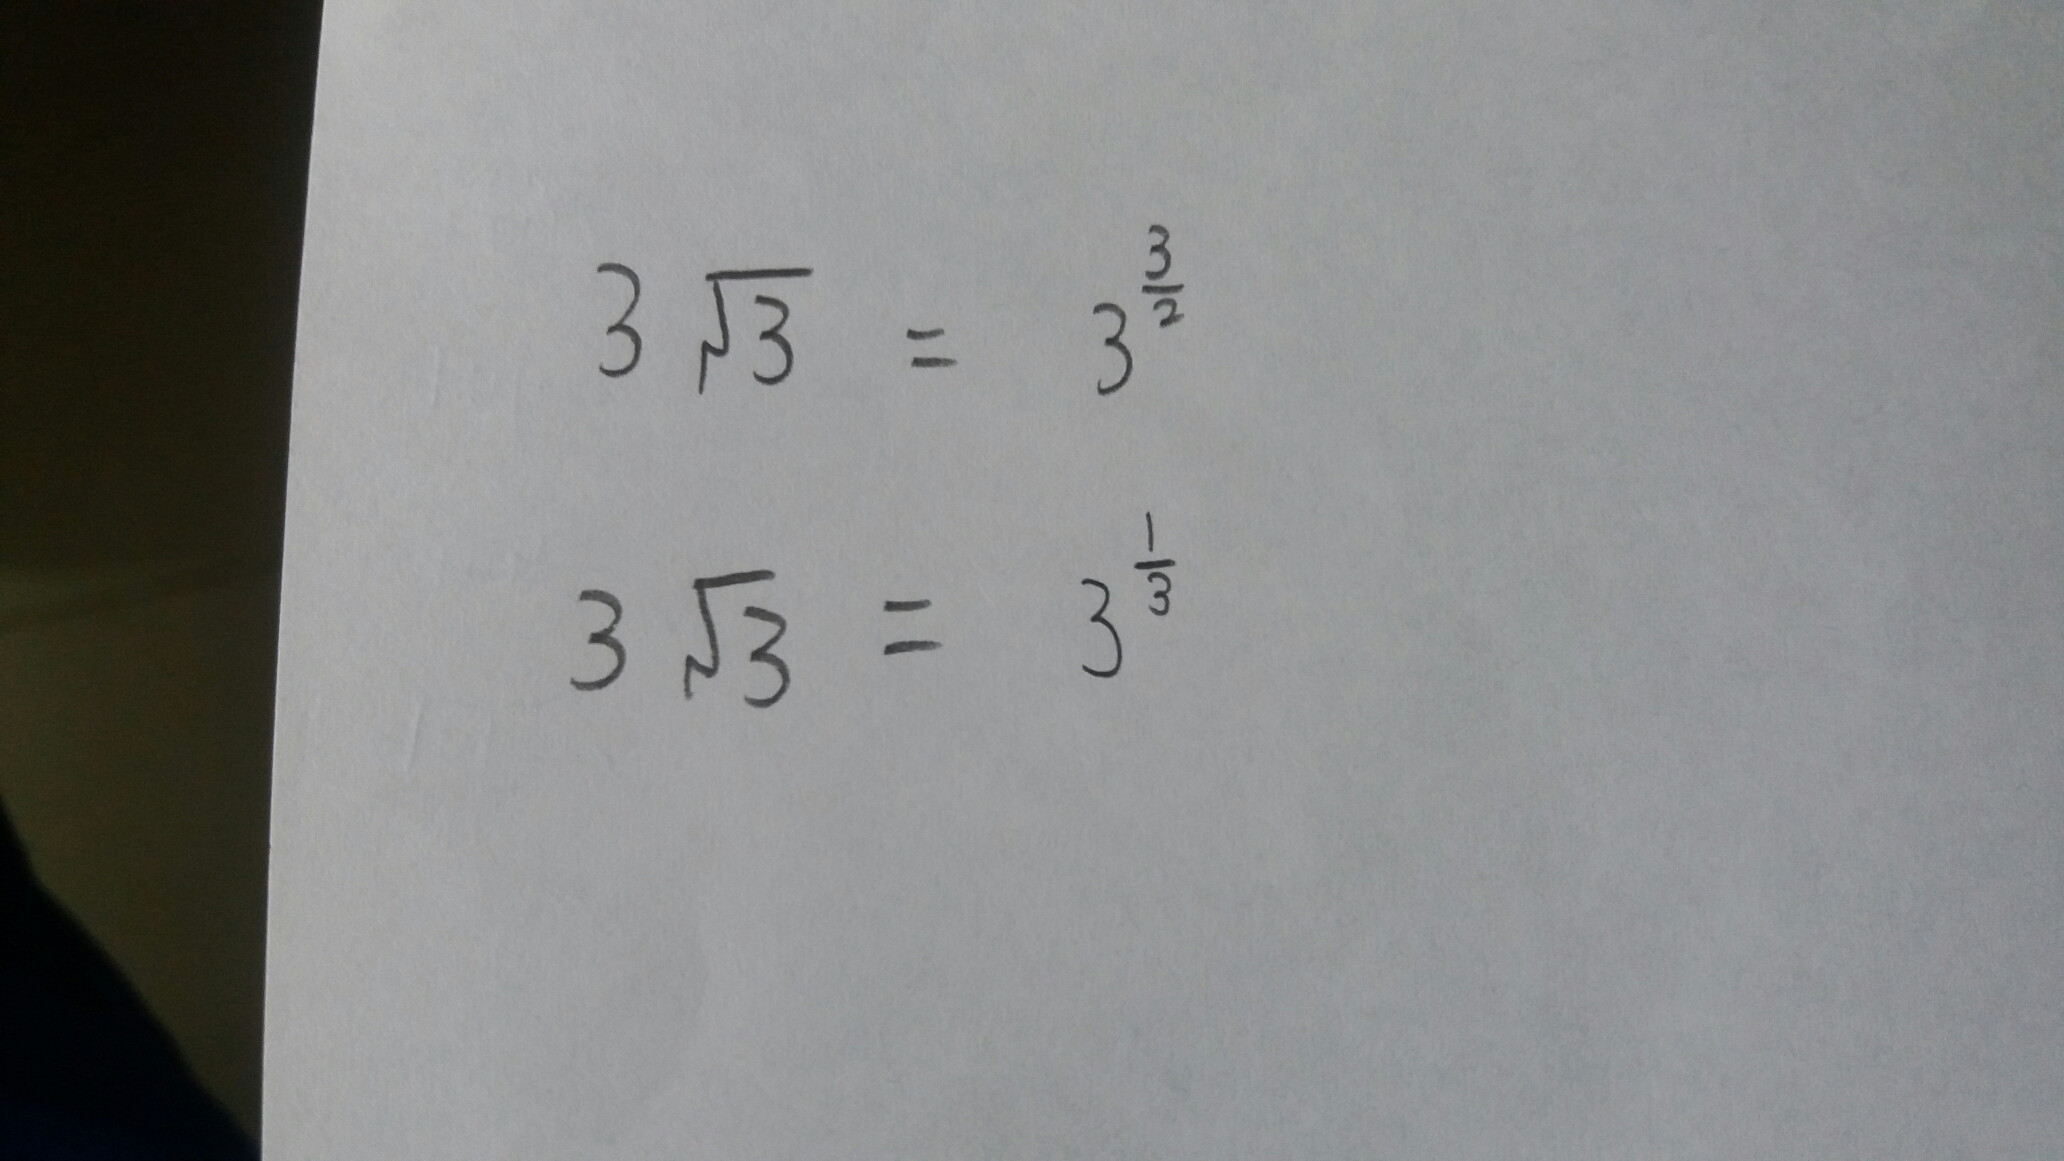 3 √3 = 3^(3/2)
3 √3 = 3^(1/3)